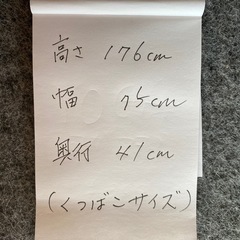 高さ 176cm
幅 75cm
奥行 41cm
(くつばこサイズ)